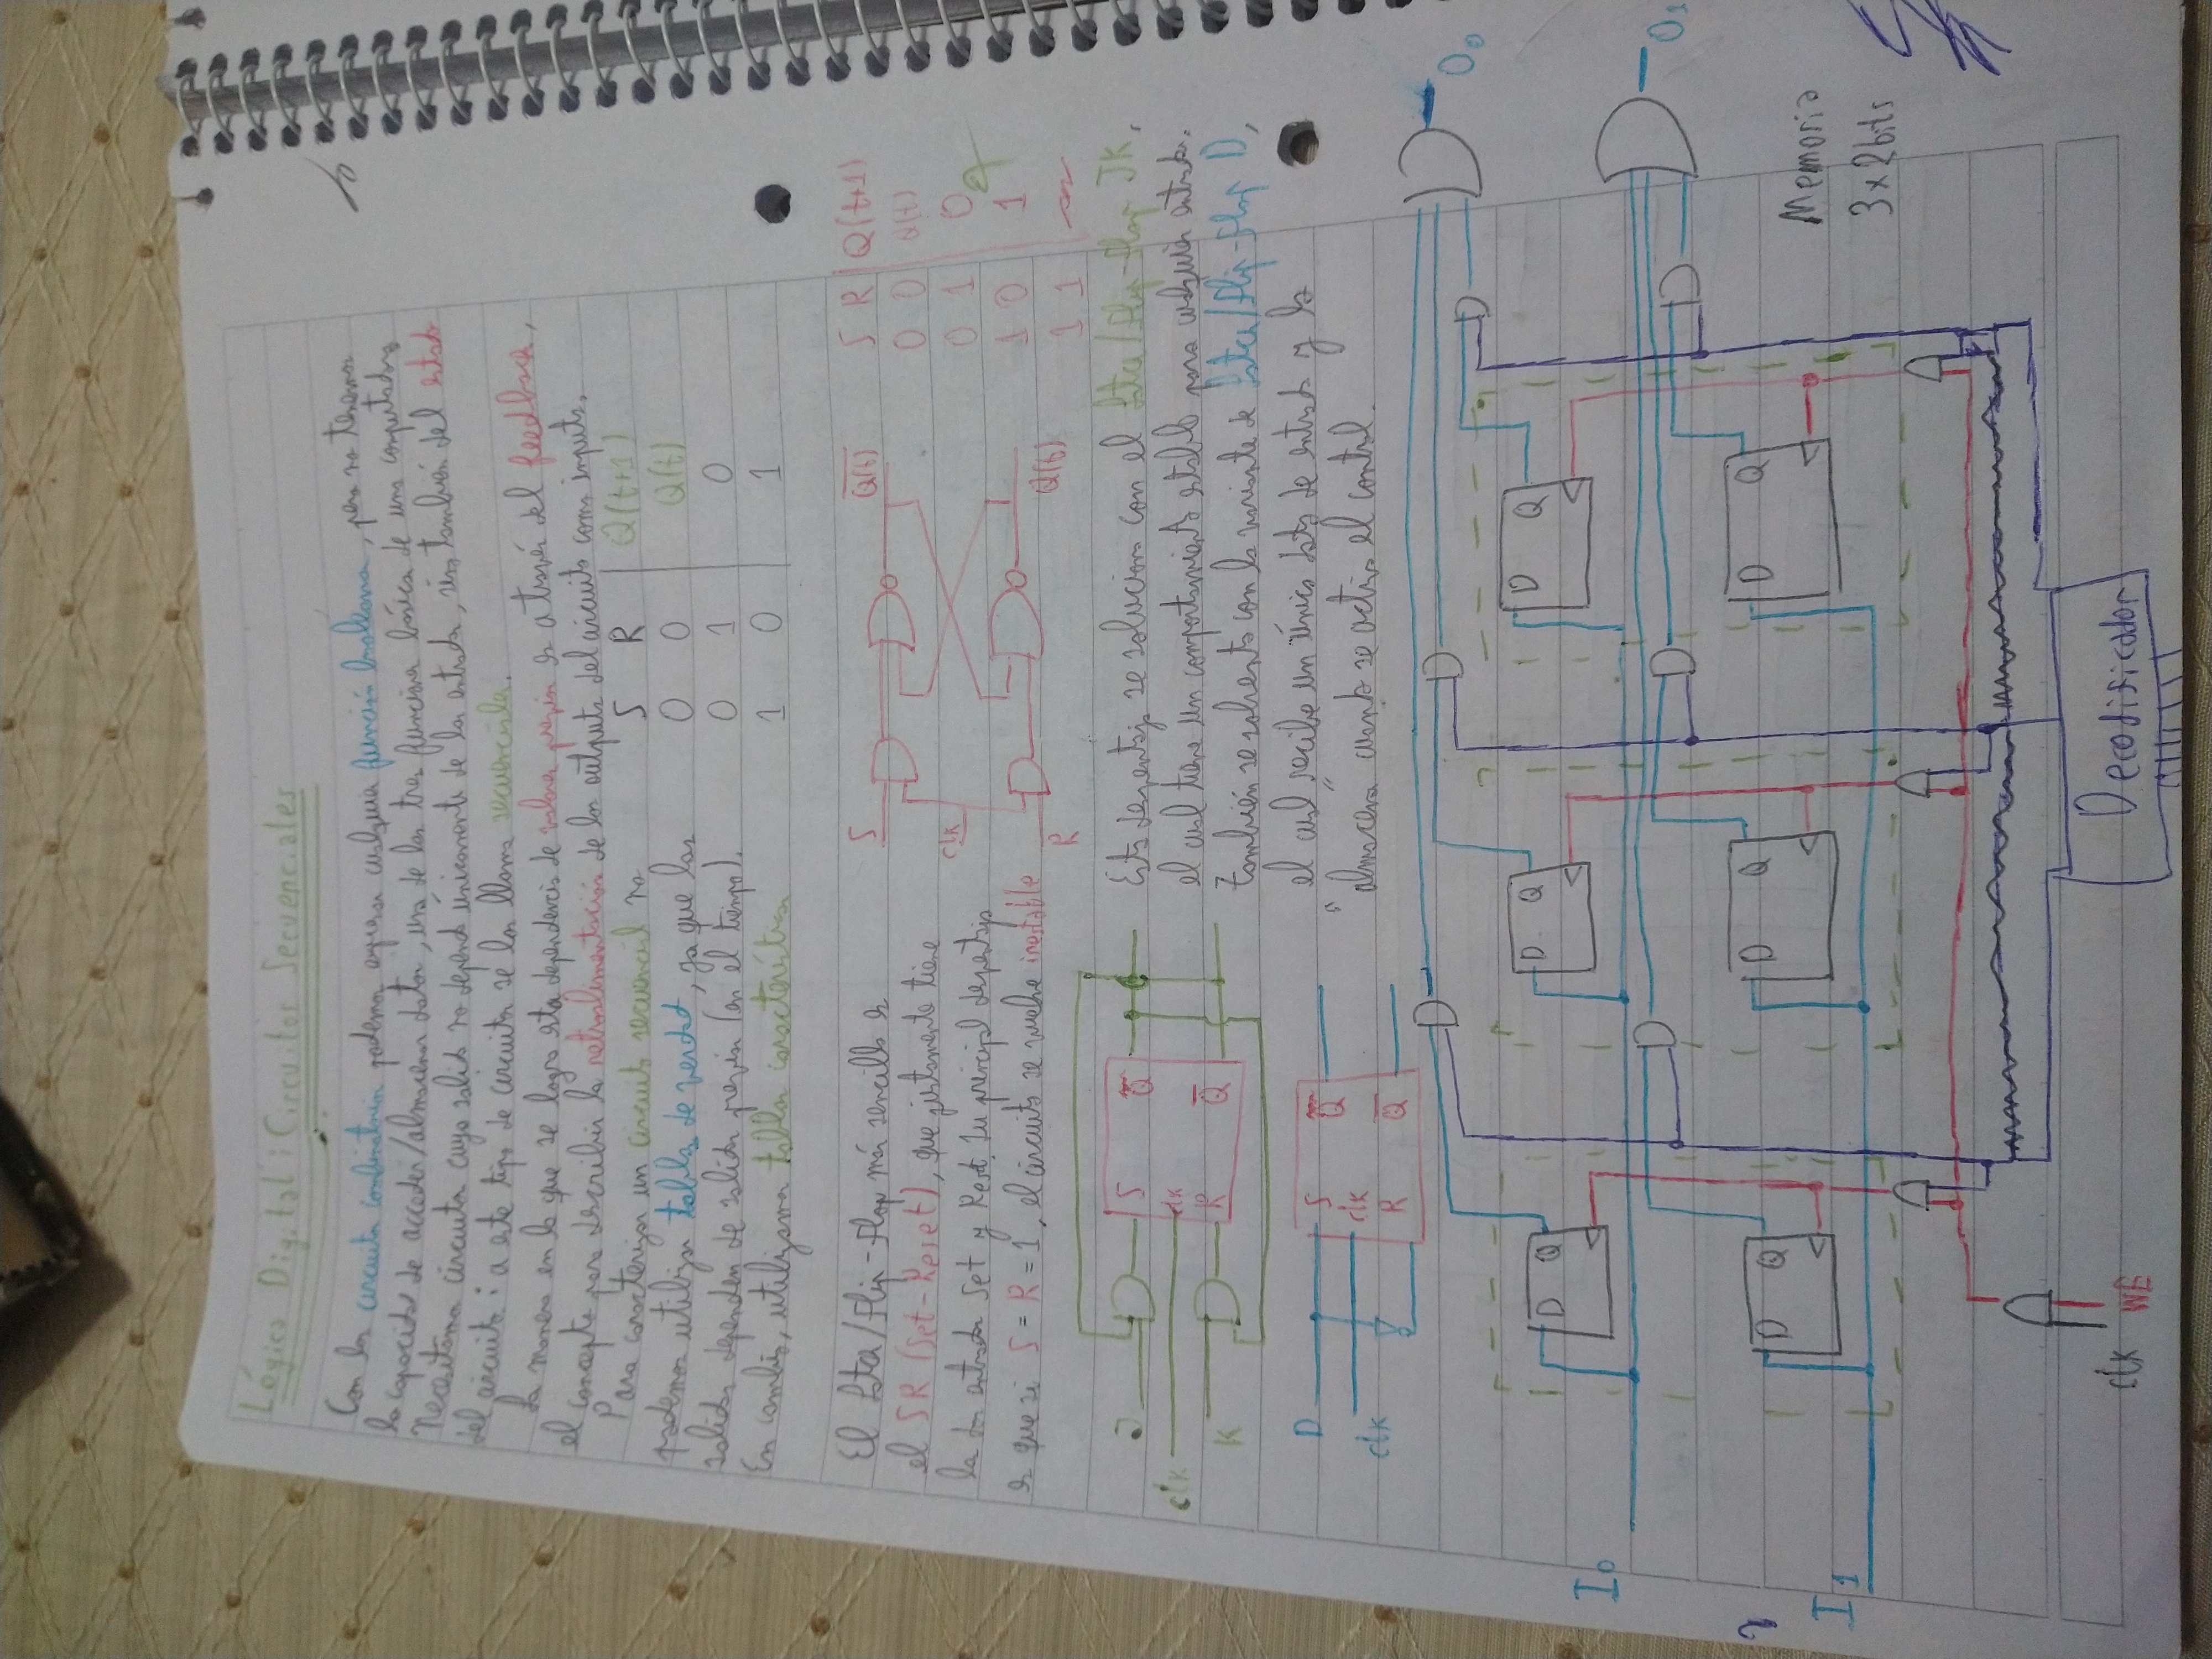 Lógica Digital: Circuitos Secuenciales
Con los circuitos combinatorios podemos expresar cualquier función booleana, pero no tenemos
la capacidad de acceder/almacenar datos, una de las tres funciones básicas de una computadora.
Necesitamos circuitos cuya salida no dependa únicamente de las entradas, sino también del estado
del circuito: a este tipo de circuitos se los llama secuenciales.
La manera en la que se logra esta dependencia de valores previos es a través del feedback,
el concepto para describir la retroalimentación de los outputs del circuito como inputs.
Para caracterizar un circuito secuencial no
podemos utilizar tablas de verdad, ya que las
salidas dependen de salidas previas (en el tiempo).
En cambio, utilizamos tablas características
S R Q(t+1)
0 0 Q(t)
0 1 0
1 0 1
El Latch/Flip-Flop más sencillo es
el SR (Set-Reset), que justamente tiene
las dos entradas Set y Reset. Su principal desventaja
es que si S = R = 1, el circuito se vuelve inestable
S Q(t)
clk
R Q(t)
S R Q(t+1)
0 0 Q(t)
0 1 0
1 0 1
1 1
J S Q
clk clk
K R Q
Esta desventaja se soluciona con el Latch/Flip-Flop JK,
el cual tiene un comportamiento estable para cualquier entrada.
También se solventa con la variante de Latch/Flip-Flop D,
el cual recibe un único dato de entrada y lo
"almacena" cuando se activa el control.
D S Q
clk clk
R Q
O0
D Q D Q D Q
I0
O1
D Q D Q D Q
I1
Memoria
3x2bits
clk WE
Decodificador